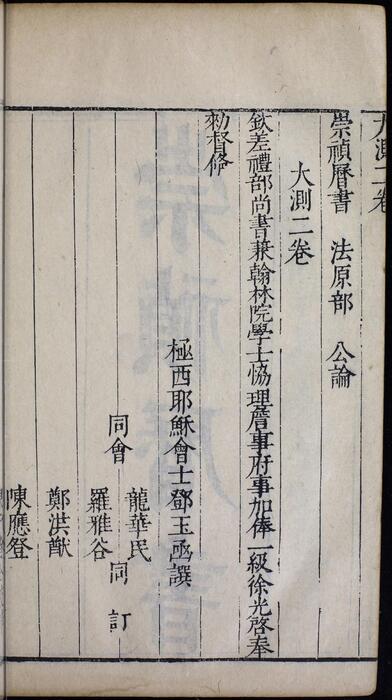 大測二卷
崇禎曆書 法原部 公論
大測二卷
欽差禮部尚書兼翰林院學士恊理詹事府事加俸一級徐光啓奉
勑督修
極西耶穌會士鄧玉函譔
龍華民
同會 同訂
羅雅谷
鄭洪猷
陳應登